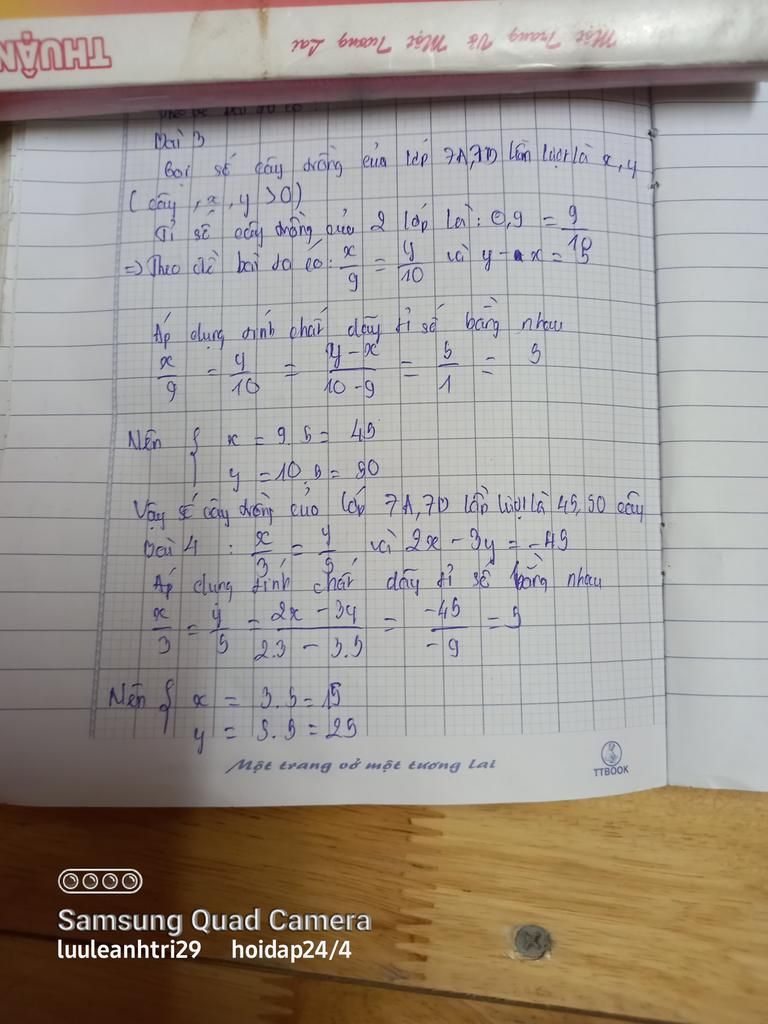 THUẬN
Một Trang Vở Một Tương Lai
Bài 3
Gọi số cây trồng của lớp 7A, 7D lần lượt là x, y
( cây , x, y > 0)
Tỉ số cây trồng của 2 lớp là: 0,9 = 9/10
=> Theo đề bài ta có: x/9 = y/10 và y - x = 5
Áp dụng tính chất dãy tỉ số bằng nhau
x/9 = y/10 = y - x/10 - 9 = 5/1 = 5
Nên { x = 9 . 5 = 45
y = 10 . 5 = 50
Vậy số cây trồng của lớp 7A, 7D lần lượt là 45, 50 cây
Bài 4 : x/3 = y/5 và 2x - 3y = -45
Áp dụng tính chất dãy tỉ số bằng nhau
x/3 = y/5 = 2x - 3y/2.3 - 3.5 = -45/-9 = 5
Nên { x = 3 . 5 = 15
y = 5 . 5 = 25
Một trang vở một tương lai
TTBOOK
Samsung Quad Camera
luuleanhtri29 hoidap24/4